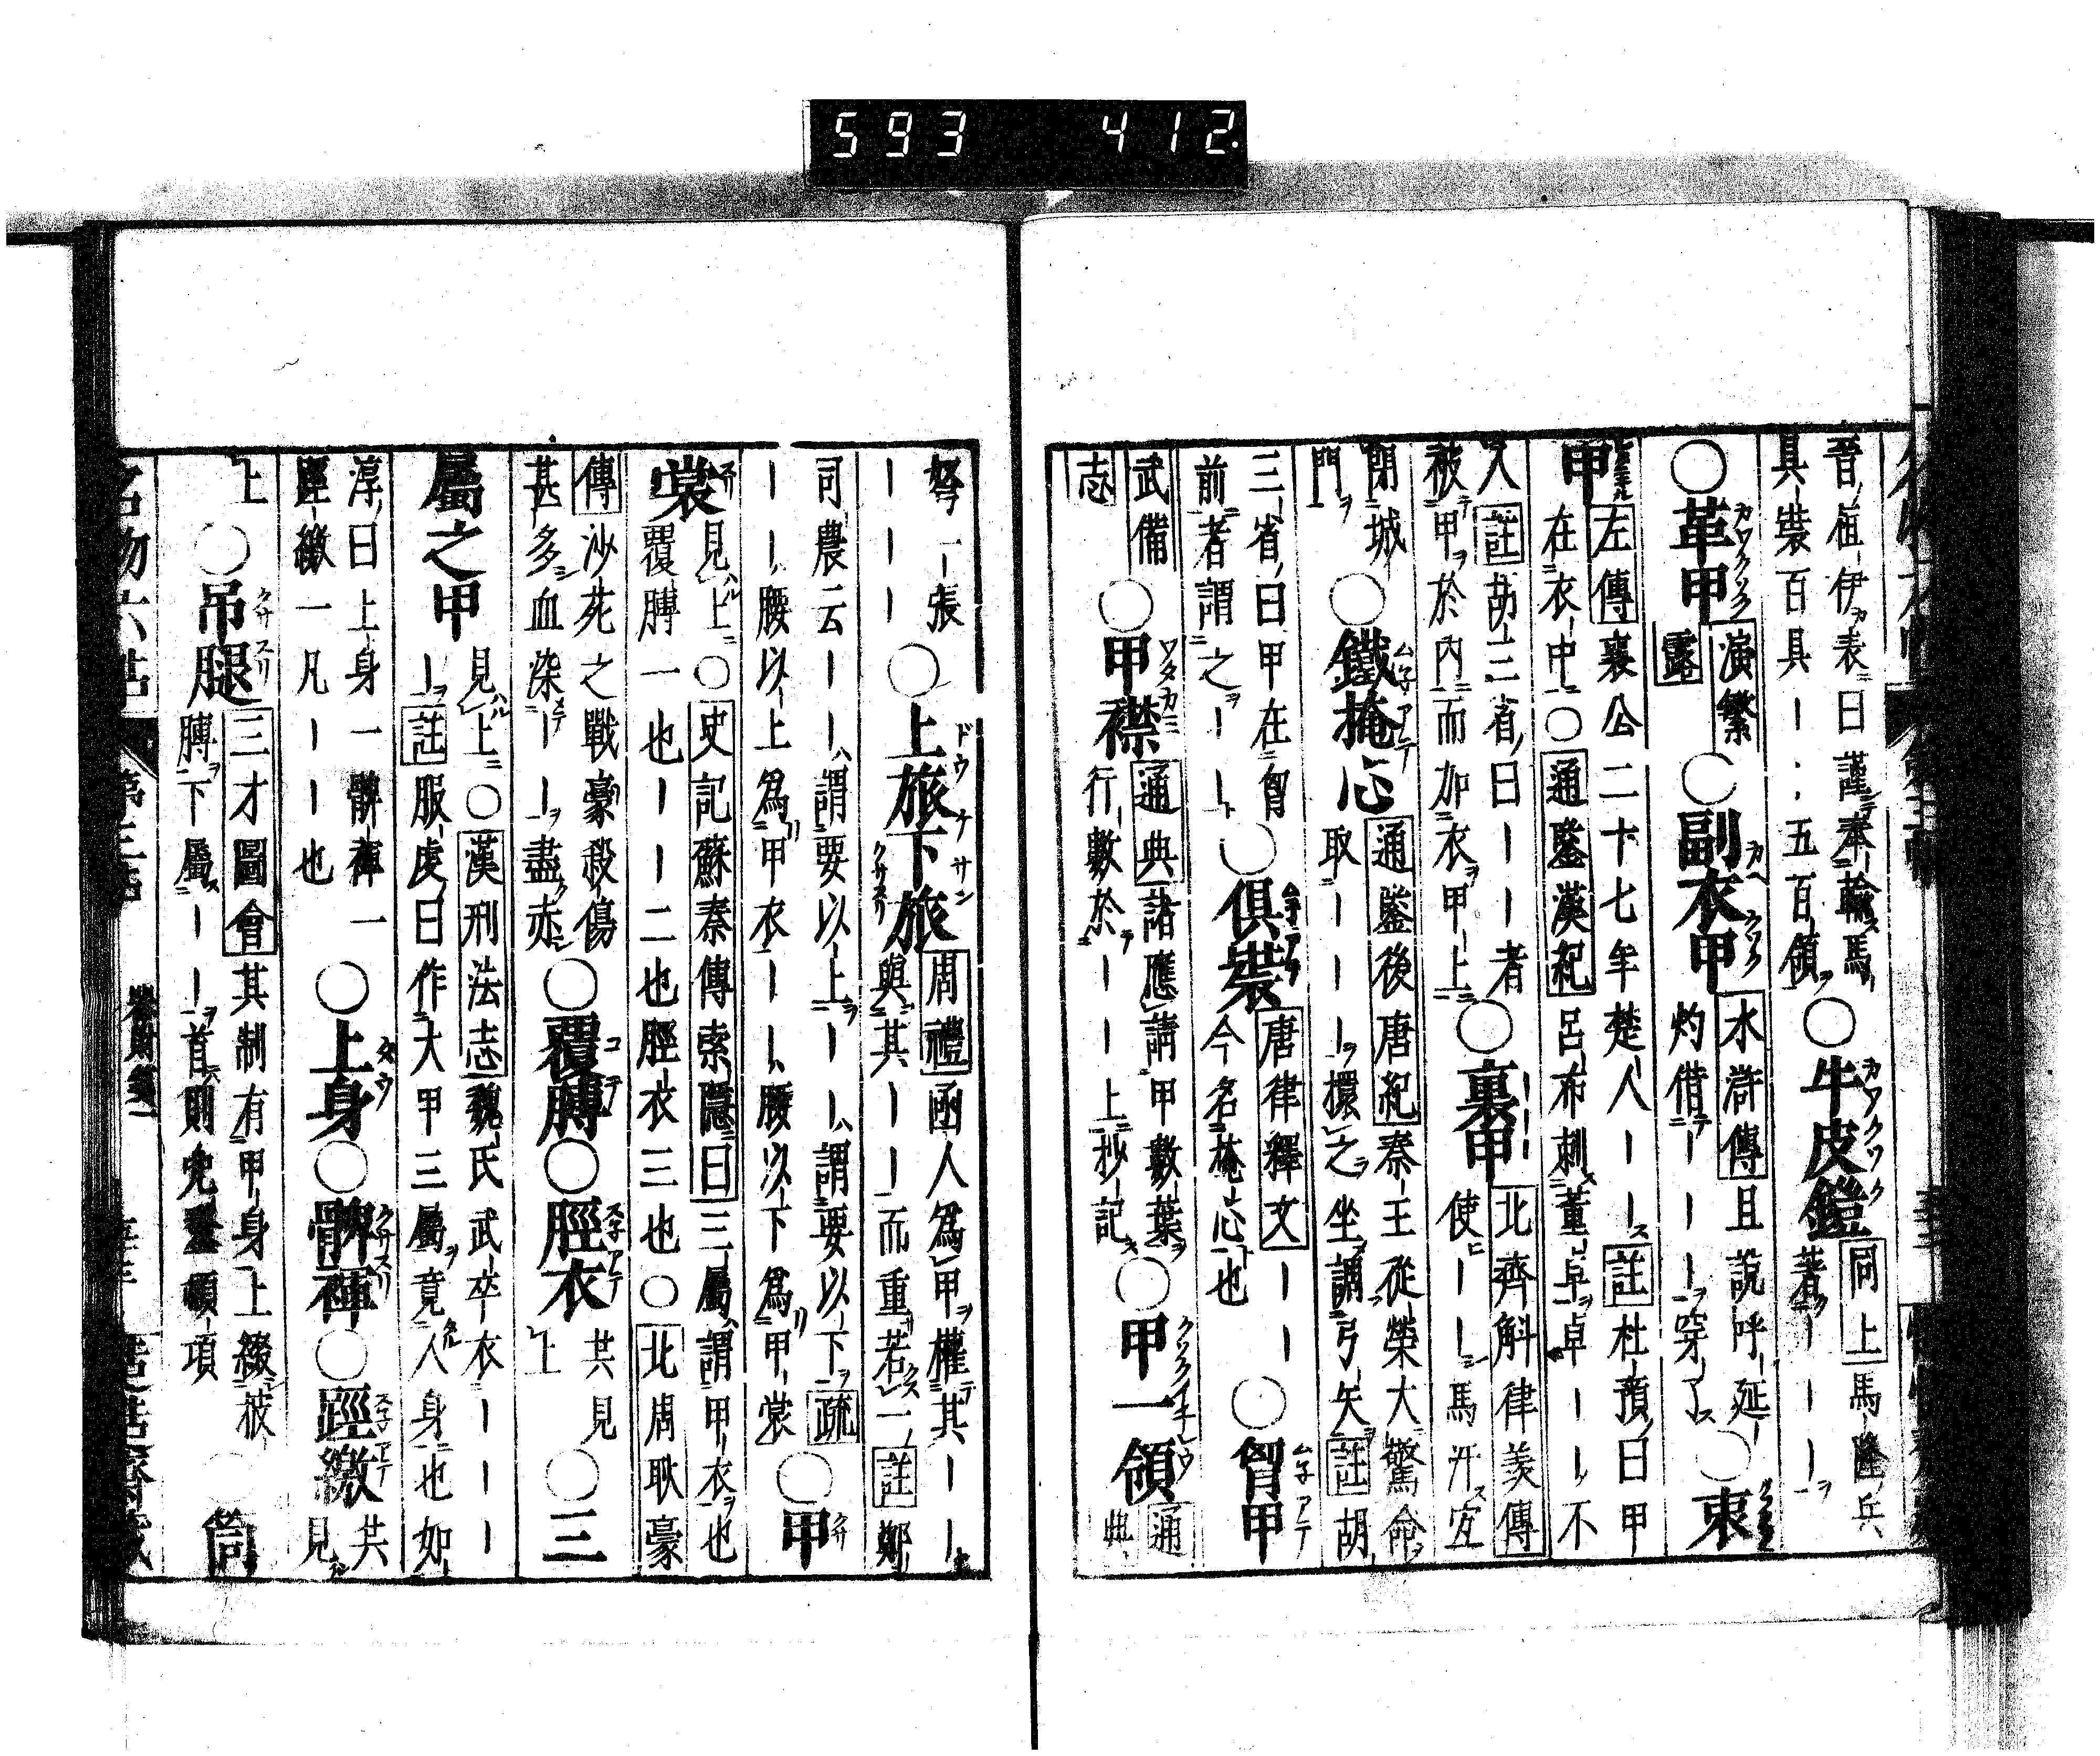 593 412.
晉崔伊表曰謹奉輸馬
具裝百具｜｜五百領 〇牛皮鎧 同上 馬隆兵
著｜｜｜
〇革甲 演繁
露 〇副衣甲 水滸傳 且說呼延
灼借｜｜｜穿了 〇衷
甲 左傳 襄公二十七年楚人｜｜ 註 杜預曰甲
在衣中〇 通鑒漢紀 呂布刺董卓卓｜｜不
入 註 胡三省曰｜｜者
被甲於内而加衣甲上 〇裏甲 北齊斛律羨傳
使｜｜馬汗宜
閉城
門 〇鐵掩心 通鑒後唐紀 秦王從榮大驚命
取｜｜｜擐之坐調弓矢 註 胡
三省曰甲在胷
前者謂之｜｜ 〇俱裝 唐律釋文 ｜｜
今名掩心也 〇胷甲
武備
志 〇甲襟 通典 諸應請甲數葉
行數於｜｜上抄記 〇甲一領 通
典
弩一張
｜｜｜ 〇上旅下旅 周禮 函人爲甲權其｜｜
與其｜｜而重若一 註 鄭
司農云｜｜謂要以上｜｜謂要以下 疏
｜｜腰以上爲甲衣｜｜腰以下爲甲裳 〇甲
裳 見上〇 史記蘇秦傳索隱曰 三屬謂甲衣也
覆膊一也｜｜二也脛衣三也〇 北周耿豪
傳 沙苑之戰豪殺傷
甚多血染｜｜盡赤 〇覆膊〇脛衣 共見
上 〇三
屬之甲 見上〇 漢刑法志 魏氏武卒衣｜｜｜
｜ 註 服虔曰作大甲三屬竟人身也如
淳曰上身一髀褌一
踁繳一凡｜｜也 〇上身〇髀褌〇踁繳 共
見
上 〇吊腿 三才圖會 其制有甲身上綴披
膊下屬｜｜首則兜鍪頓項 〇筒